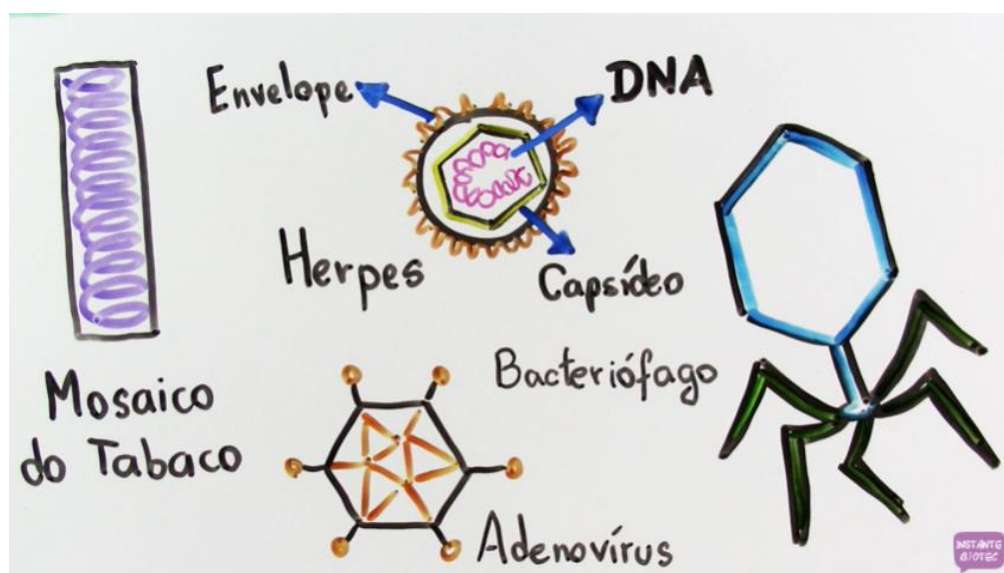 Envelope
DNA
Herpes
Capsídeo
Mosaico
do Tabaco
Bacteriófago
Adenovírus
INSTANTE
BIOTEC